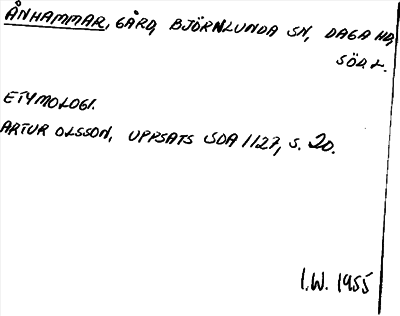 ÅNHAMMAR, GÅRD, BJÖRNLUNDA SN, DAGA HD,
SÖDL.
ETYMOLOGI.
ARTUR OLSSON, UPPSATS SOA 1127, S. 20.
I.W. 1955